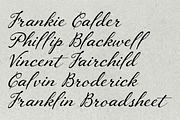 Frankie Calder
Phillip Blackwell
Vincent Fairchild
Calvin Broderick
Franklin Broadsheet